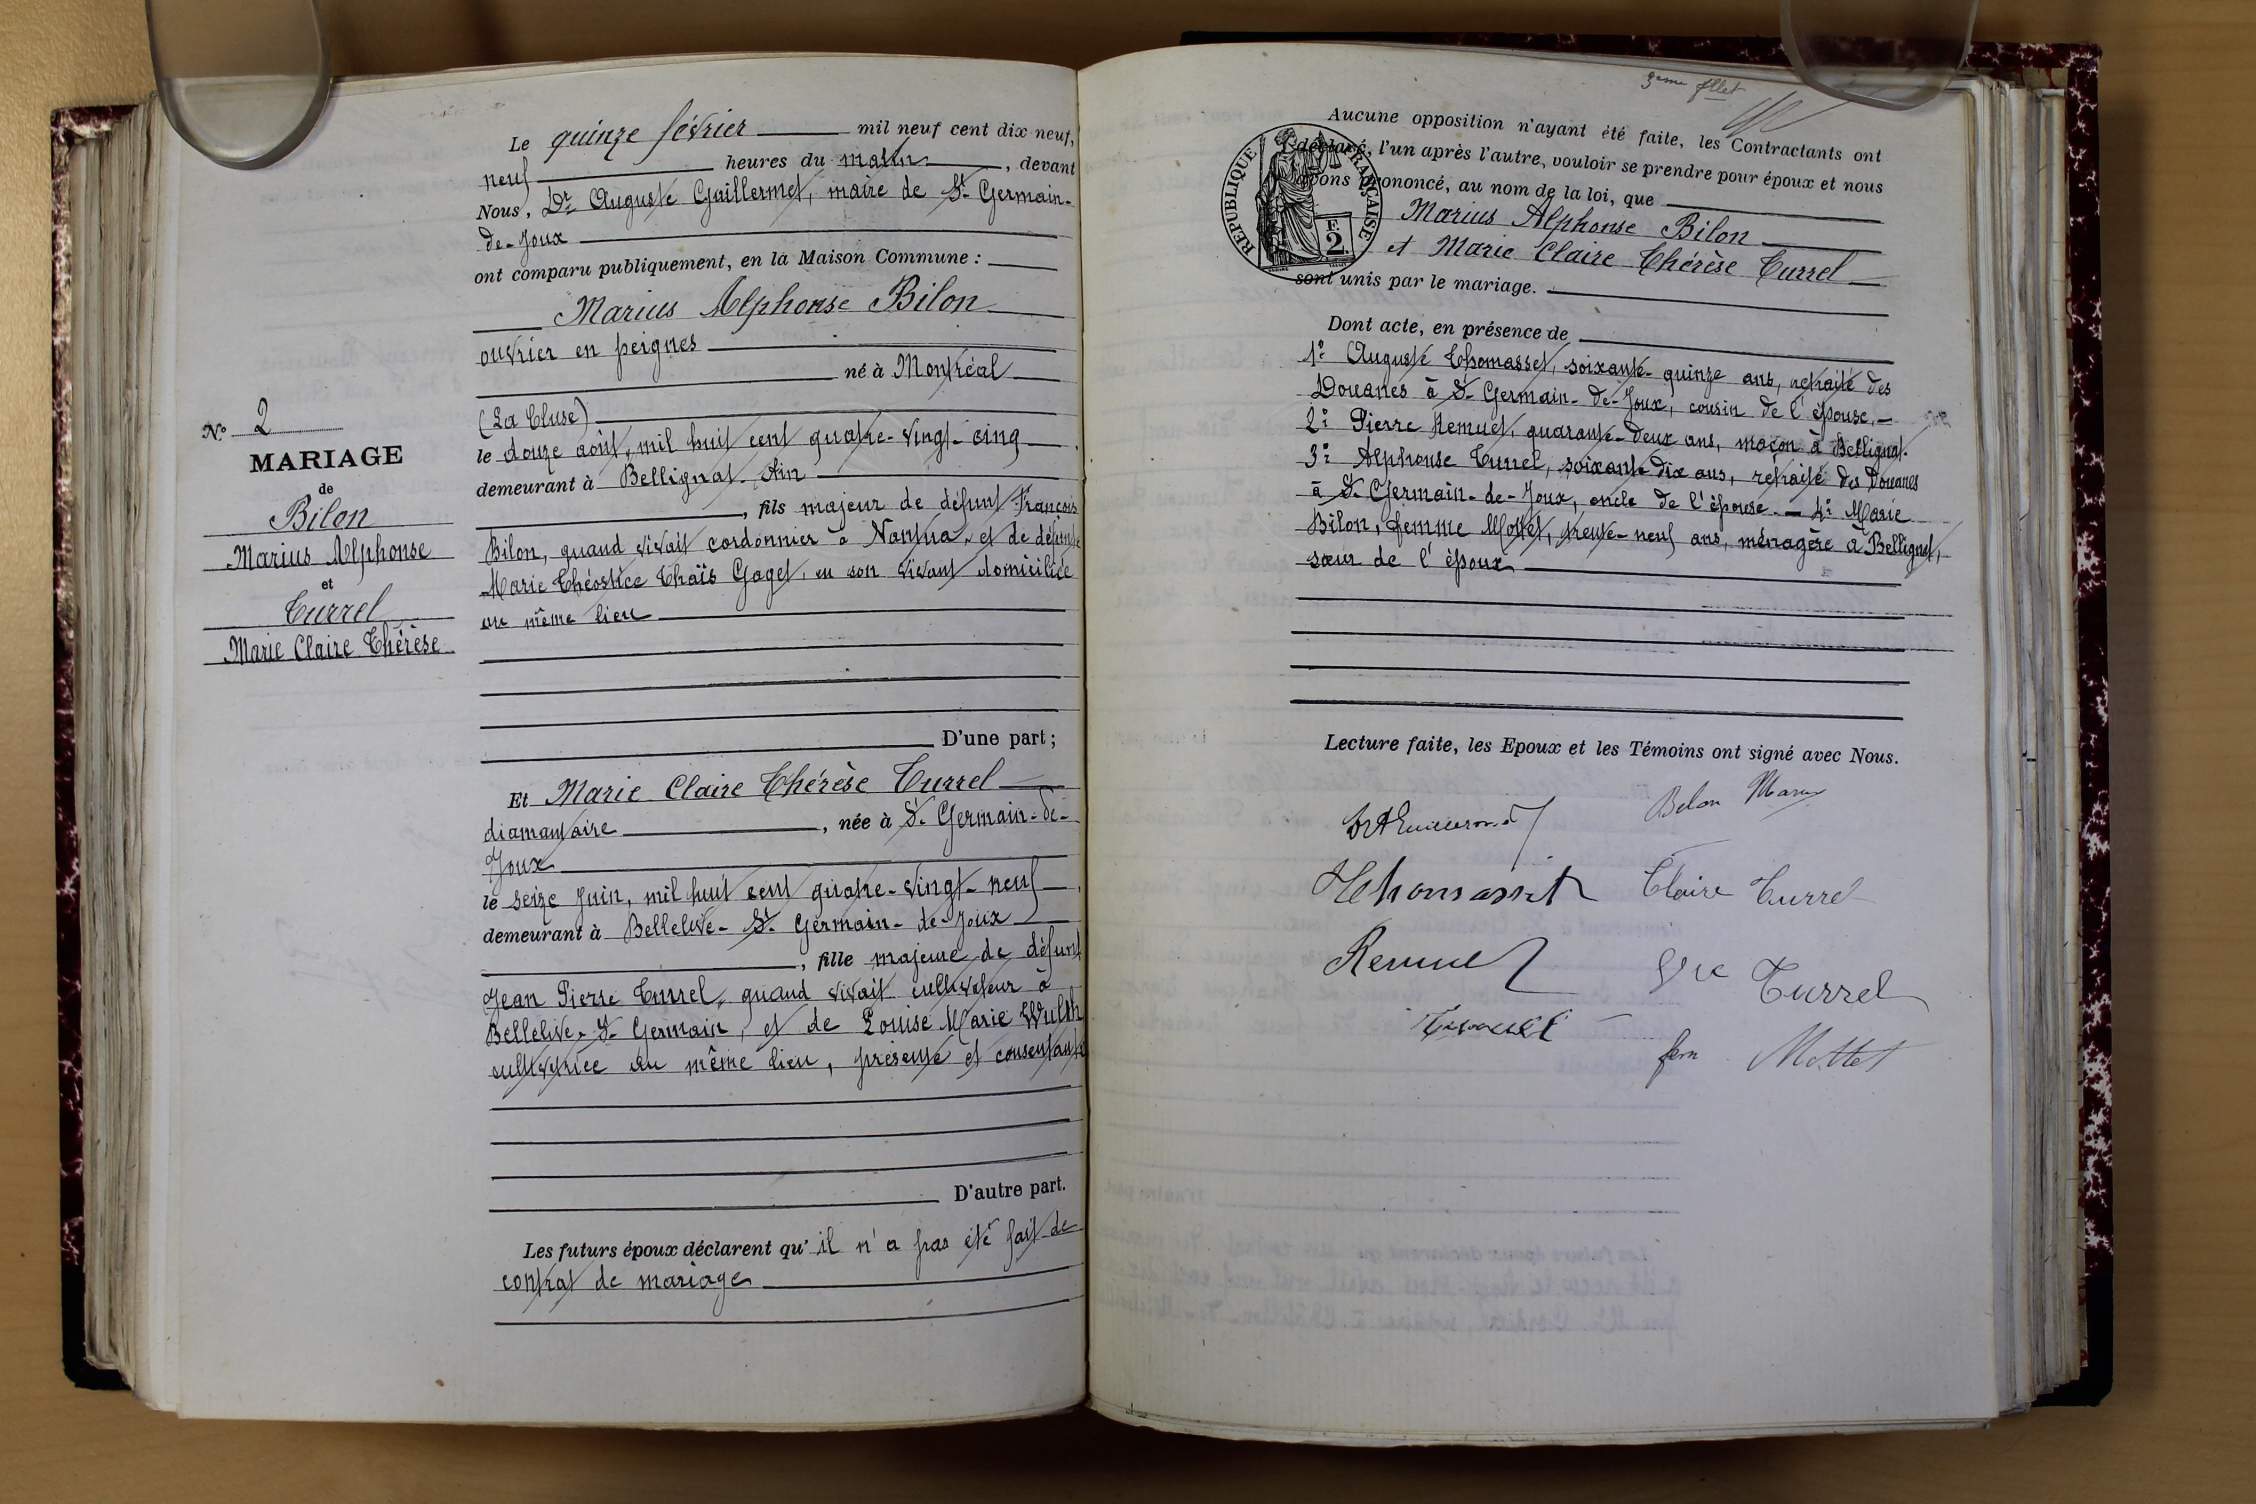 N° 2
MARIAGE
de
Bilon
Marius Alphonse
et
Turrel
Marie Claire Thérèse
Le quinze février mil neuf cent dix neuf,
neuf heures du matin, devant
Nous, Dr Auguste Guillermet, maire de St Germain-
de-Joux
ont comparu publiquement, en la Maison Commune :
Marius Alphonse Bilon
ouvrier en peignes
né à Montréal
(La Cluse)
le douze août, mil huit cent quatre-vingt-cinq
demeurant à Bellignat. Ain
, fils majeur de défunt François
Bilon, quand vivait cordonnier à Nantua, et de défunte
Marie Théostice Thaïs Goget, en son vivant domiciliée
au même lieu
D'une part ;
Et Marie Claire Thérèse Turrel
diamantaire, née à St Germain-de-
Joux
le seize Juin, mil huit cent quatre-vingt-neuf
demeurant à Bellelive- St Germain-de-Joux
, fille majeure de défunt
Jean Pierre Turrel, quand vivait cultivateur à
Bellelive- St Germain, et de Louise Marie
cultivatrice au même lieu, présente et consentante
D'autre part.
Les futurs époux déclarent qu'il n'a pas été fait de
contrat de mariage
3eme fllet
Aucune opposition n'ayant été faite, les Contractants ont
déclaré, l'un après l'autre, vouloir se prendre pour époux et nous
avons prononcé, au nom de la loi, que
Marius Alphonse Bilon
et Marie Claire Thérèse Turrel
sont unis par le mariage.
RÉPUBLIQUE FRANÇAISE
F.
2
Dont acte, en présence de
1° Auguste Thomasset, soixante-quinze ans, retraité des
Douanes à St Germain-de-Joux, cousin de l'épouse,-
2° Pierre Remuet, quarante-deux ans, maçon à Bellignat.
3° Alphonse Turrel, soixante dix ans, retraité des Douanes
à St Germain-de-Joux, oncle de l'épouse - 4° Marie
Bilon, femme Mottet, trente-neuf ans, ménagère à Bellignat,
sœur de l'époux
Lecture faite, les Epoux et les Témoins ont signé avec Nous.
Bilon Marius
Thomasset Claire Turrel
Remuet
Turrel
fem Mottet